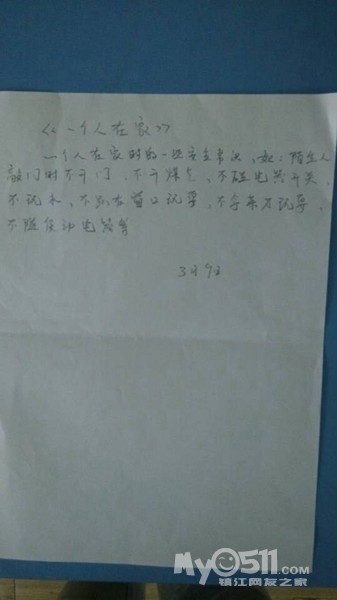 《一个人在家》
一个人在家时的一些安全常识，如：陌生人
敲门时不开门、不开煤气、不碰电器开关、
不玩火、不趴在窗口玩耍、不拿剪刀玩耍、
不随便动电
3月9日
My0511.com
镇江网友之家